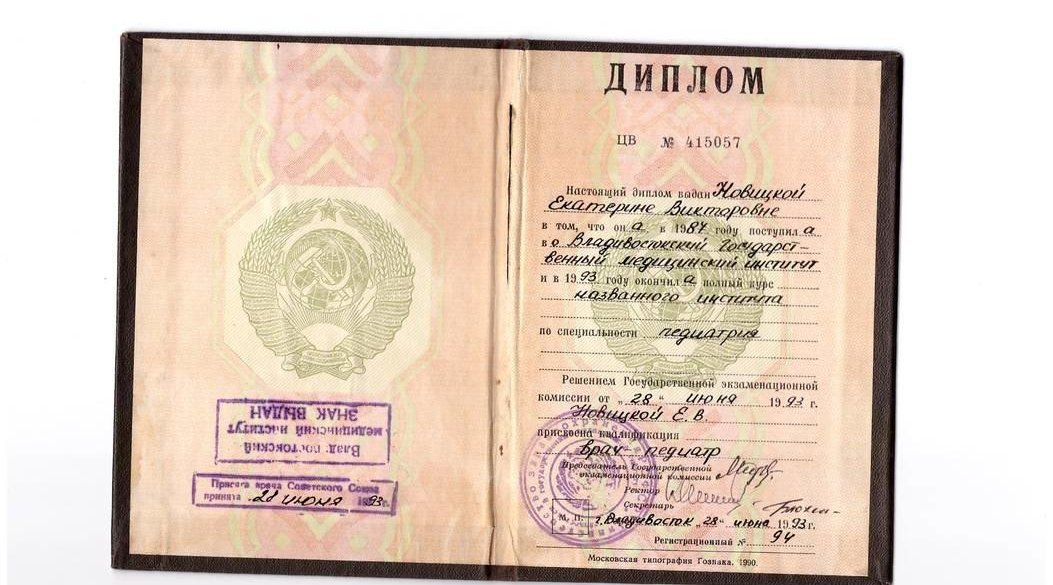 Владивостокский
медицинский институт
ЗНАК ВЫДАН
Присяга врача Советского Союза
принята 28 июня 1993г.
ДИПЛОМ
ЦВ № 415057
Настоящий диплом выдан Новицкой
Екатерине Викторовне
в том, что он а в 1987 году поступил а
в о Владивостокский Государст-
венный медицинский институт
и в 1993 году окончил а полный курс
названного института
по специальности педиатрия
Решением Государственной экзаменационной
комиссии от „28“ июня 1993 г.
Новицкой Е. В.
присвоена квалификация
врач-педиатр
Председатель Государственной
экзаменационной комиссии
Ректор
Секретарь
М. П. г. Владивосток „28“ июня 1993г.
Регистрационный № 94
Московская типография Гознака. 1990.